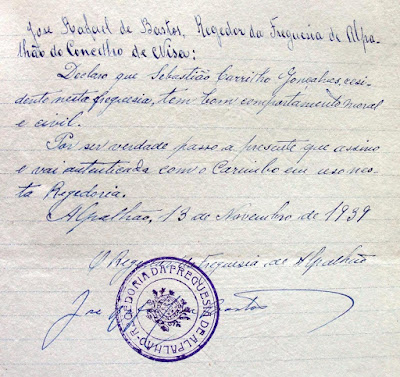 José Rafael de Bastos, Regedor da Freguesia de Alpa-
lhão do Concelho de Nisa:
Declaro que Sebastião Carrilho Gonçalves, resi-
dente nesta freguesia, tem bom comportamento moral
e civil.
Por ser verdade passo a presente que assino
e vai autenticada com o Carimbo em uso nes-
ta Regedoria.
Alpalhão, 13 de Novembro de 1939
O Regedor da Freguesia de Alpalhão
José Bastos
REGEDORIA DA FREGUESIA DE ALPALHÃO